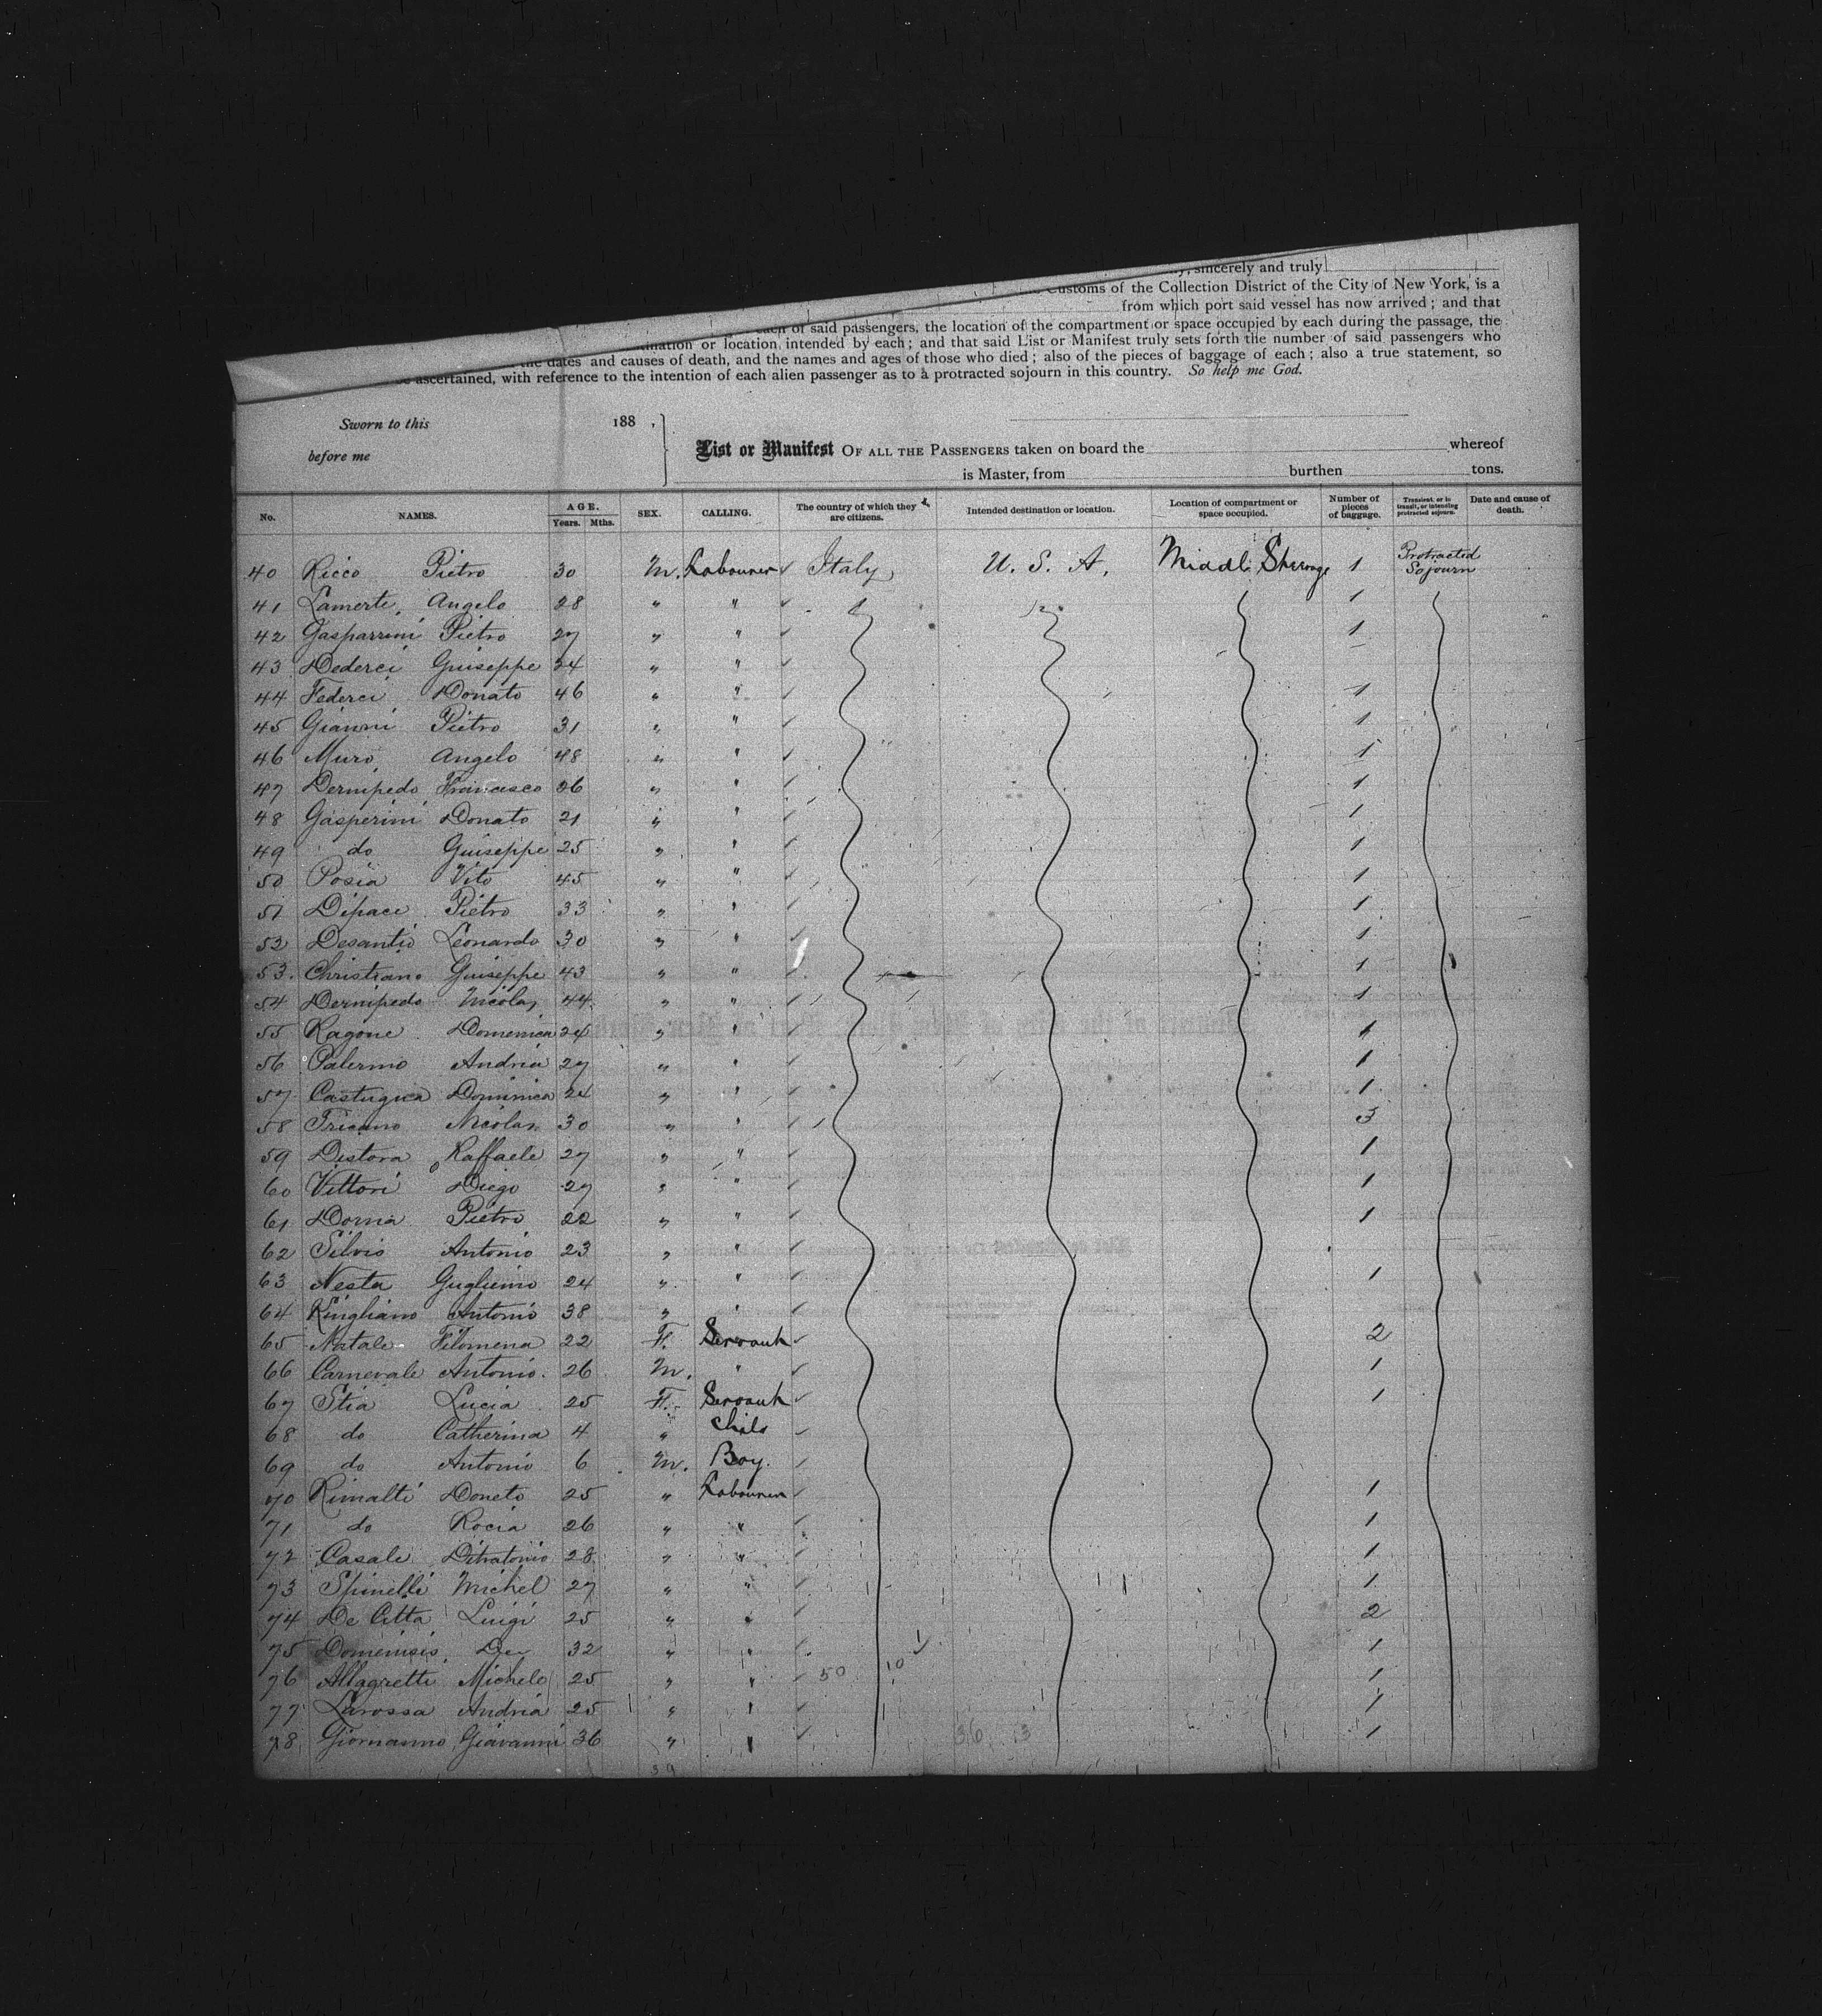 sincerely and truly
Customs of the Collection District of the City of New York, is a
from which port said vessel has now arrived; and that
each of said passengers, the location of the compartment or space occupied by each during the passage, the
or location intended by each; and that said List or Manifest truly sets forth the number of said passengers who
the dates and causes of death, and the names and ages of those who died; also of the pieces of baggage of each; also a true statement, so
ascertained, with reference to the intention of each alien passenger as to a protracted sojourn in this country. So help me God.
Sworn to this 188 ,
before me
List or Manifest OF ALL THE PASSENGERS taken on board the whereof
is Master, from burthen tons.
No. NAMES. AGE. Years. Mths. SEX. CALLING. The country of which they are citizens. Intended destination or location. Location of compartment or space occupied. Number of pieces of baggage. Transient, or in transit, or intending protracted sojourn. Date and cause of death.
40 Ricco Pietro 30 M. Labourer Italy U. S. A. Middle Steerage 1 Protracted Sojourn
41 Lamerte, Angelo 28 " " 1
42 Gasparrini Pietro 27 " " 1
43 Dederci Guiseppe 34 " "
44 Federci Donato 46 " " 1
45 Gianni Pietro 31 " " 1
46 Muro Angelo 48 " " 1
47 Dernipedo Francesco 36 " " 1
48 Gasperini Donato 21 " " 1
49 do Guiseppe 25 " " 1
50 Posia Vito 45 " " 1
51 Dipace Pietro 33 " " 1
52 Desantio Leonardo 30 " " 1
53 Christiano Guiseppe 43 " " 1
54 Dernipedo Nicolas 44 " " 1
55 Ragone Domenica 24 " " 1
56 Palermo Andria 27 " " 1
57 Castugna Dominica 24 " " 1
58 Tricano Nicolas 30 " " 3
59 Distora Raffaele 27 " " 1
60 Vittori Diego 27 " " 1
61 Dorna Pietro 22 " " 1
62 Silvio Antonio 23 " "
63 Nesta Guglielmo 24 " " 1
64 Ringliano Antonio 38 " "
65 Natale Filomena 22 F. Servant 2
66 Carnevale Antonio 26 M. " 1
67 Stia Lucia 25 F. Servant 1
68 do Catherina 4 " Child
69 do Antonio 6 M. Boy.
70 Rimalti Doneto 25 " Labourer 1
71 do Rocia 26 " " 1
72 Casale Ditratonio 28 " " 1
73 Spinelli Michel 27 " " 1
74 De Citta Luigi 25 " " 2
75 Domenisis, De 32 " " 1
76 Allagretti Michele 25 " " 50 10 1
77 Larossa Andria 25 " " 1
78 Giornanno Giavanni 36 " " 36 3 1
39